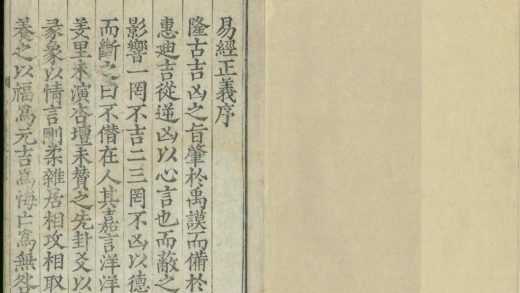 易經正義序
隆古吉凶之旨肇於禹謨而備於
惠迪吉從逆凶以心言也而蔽之
影響一罔不吉二三罔不凶以德
而斷之曰不僭在人其嘉言洋洋
羑里未演杏壇未贊之先卦爻以
彖象以情言剛柔雜居相攻相取
養之以福為元吉為悔亡為無咎